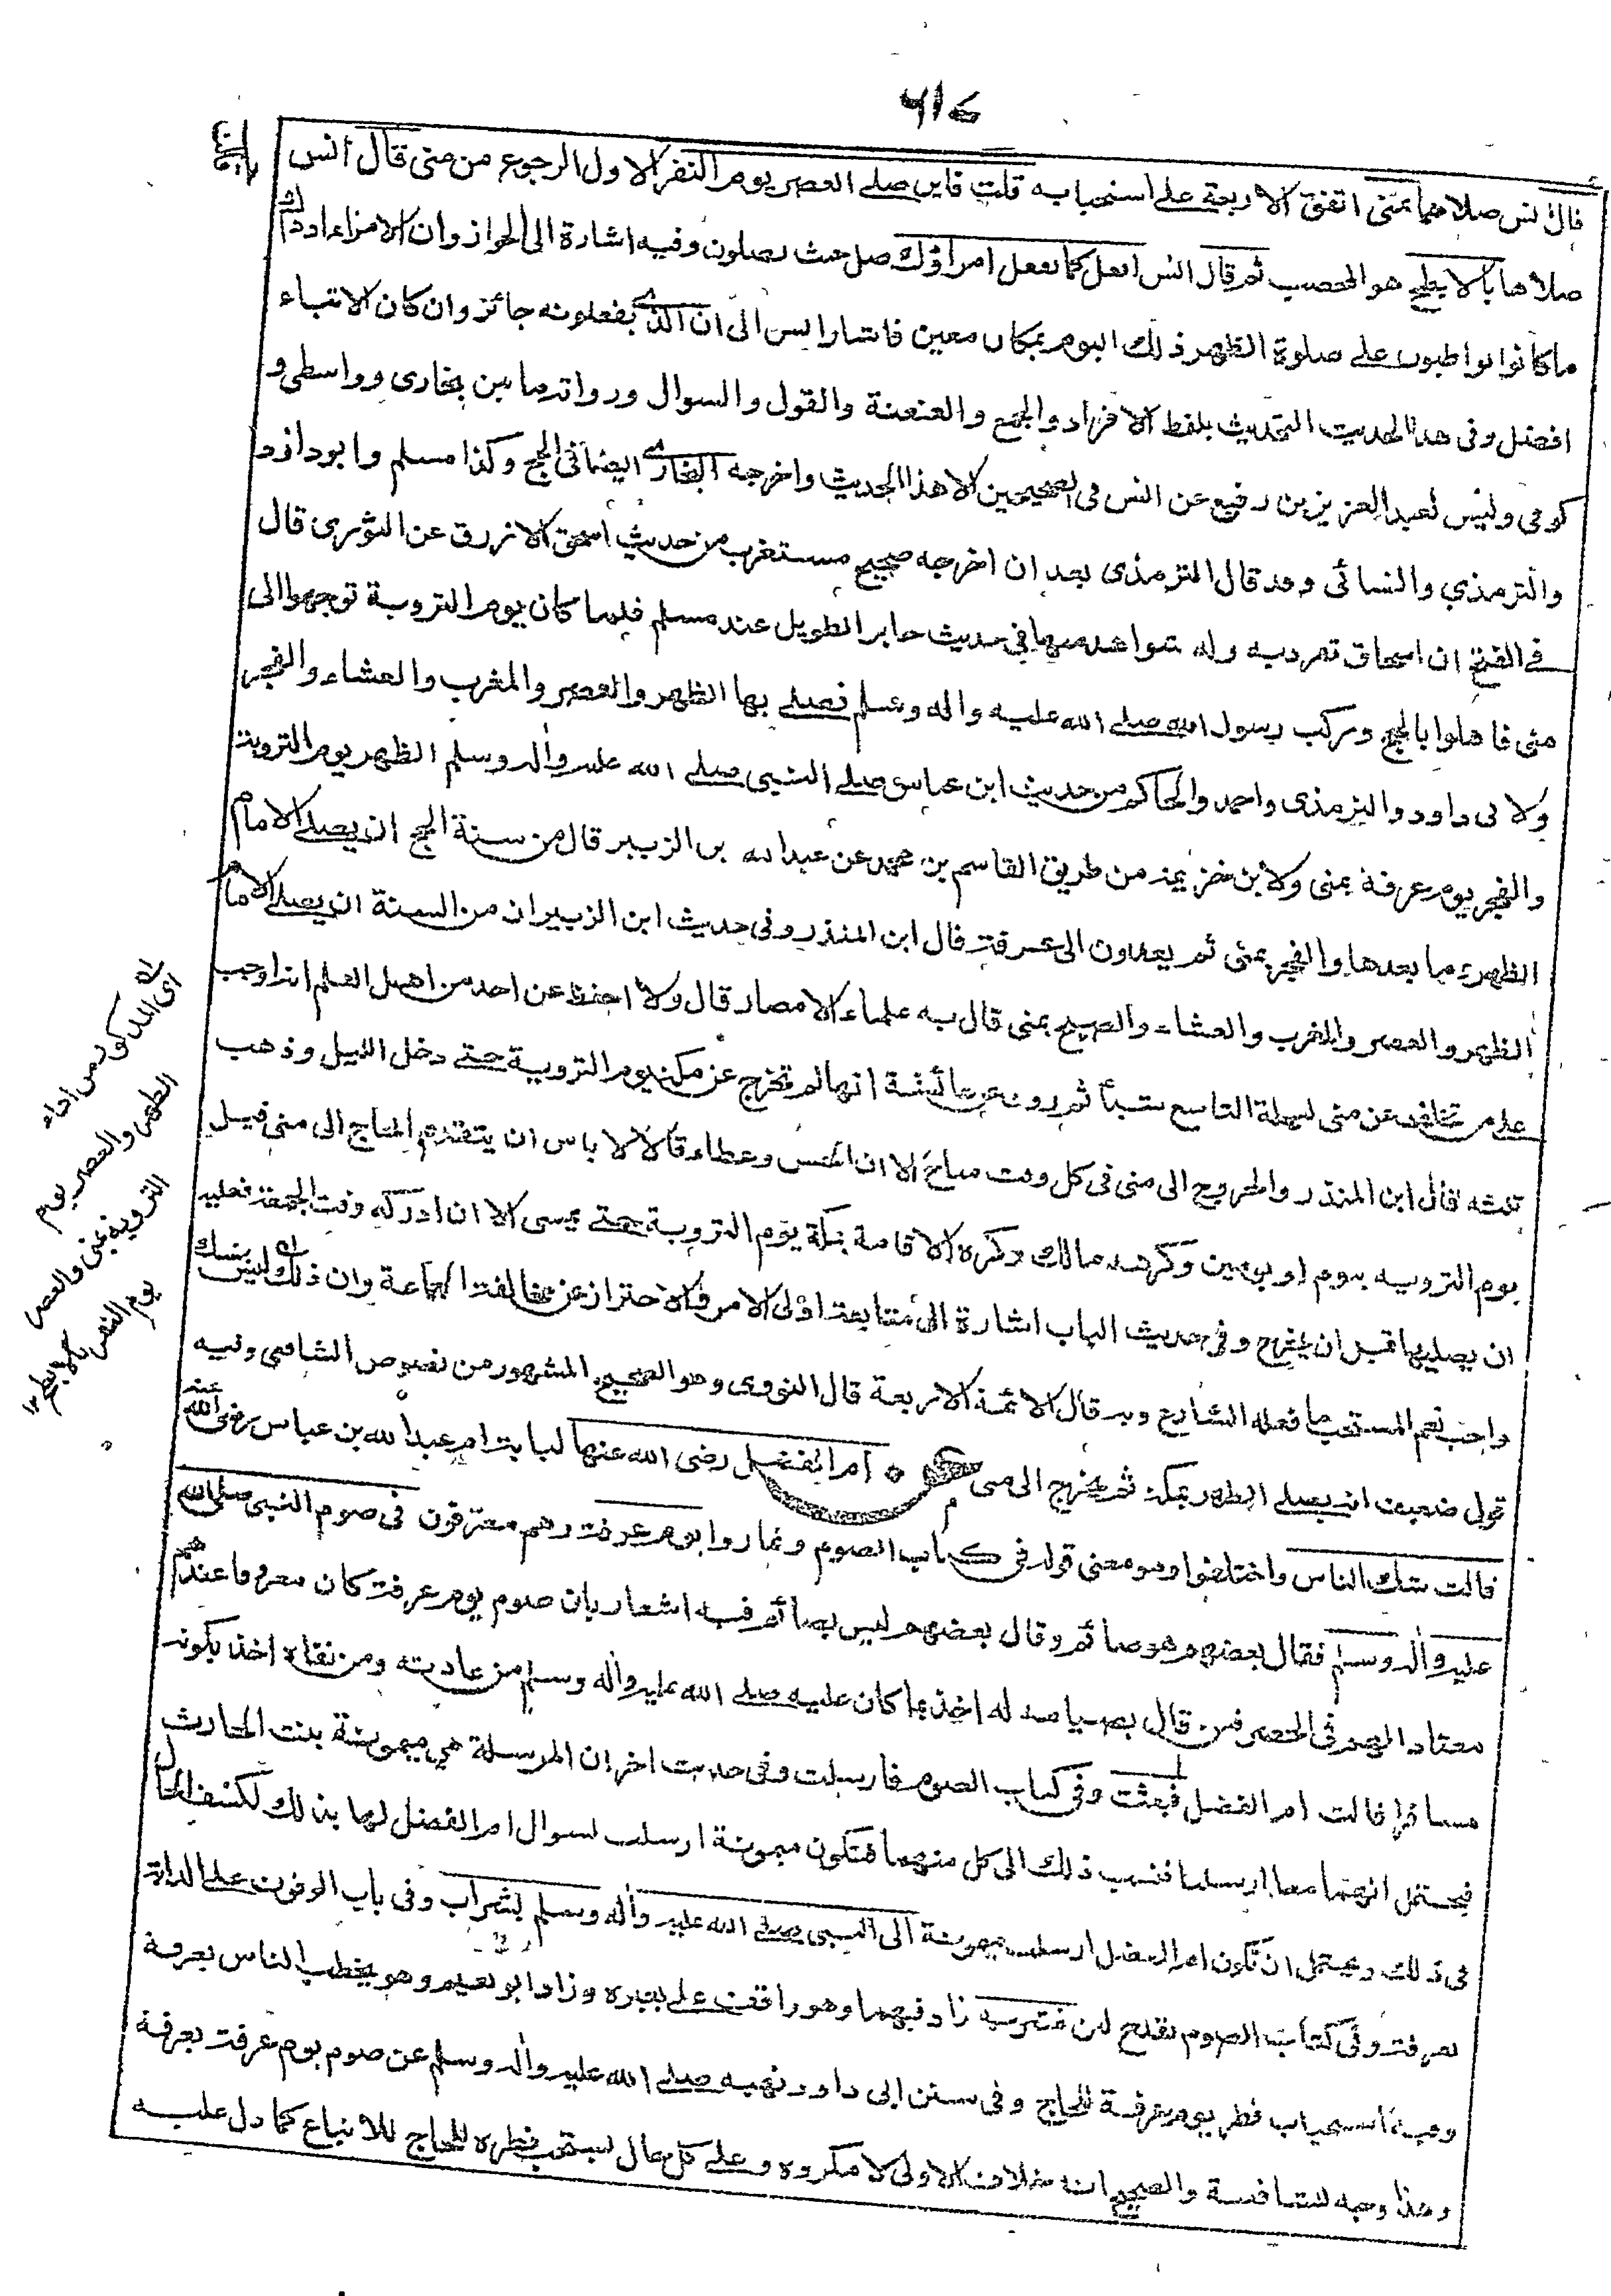 ٤١٤
قال انس صلاهما بمنى اتفق الاربعة على استحبابه قلت فاين صلے العصر يوم النفر الاول الرجوع من منى قال انس
صلاها بالابطح هو المحصب ثم قال انس افعل كما يفعل امراؤك صل حيث يصلون وفيه اشارة الى الجواز وان الامراء اذ ذاك
ما كانوا يواظبون على صلوة الظهر ذلك اليوم بمكان معين فاشار انس الى ان الذي يفعلونه جائز وان كان الاتباع
افضل وفى هذا الحديث التحديث بلفظ الافراد والجمع والعنعنة والقول والسوال ورواته ما بين بخارى وواسطى و
كوفى وليس لعبد العزيز بن رفيع عن انس فى الصحيحين الا هذا الحديث واخرجه البخاري ايضا فى الحج وكذا مسلم وابو داؤد
والترمذي والنسائى وقد قال الترمذى بعد ان اخرجه صحيح مستغرب من حديث اسحق الازرق عن الثورى قال
فے الفتح ان اسحاق تفرد به وله شواهد منها فى حديث جابر الطويل عند مسلم فلما كان يوم التروية توجهوا الى
منى فاهلوا بالحج وركب رسول الله صلے الله عليه واله وسلم فصلے بها الظهر والعصر والمغرب والعشاء والفجر
ولابى داود والترمذى واحمد والحاكم من حديث ابن عباس صلے النبى صلے الله عليه واله وسلم الظهر يوم التروية
والفجر يوم عرفة بمنى ولابن خزيمة من طريق القاسم بن محمد عن عبد الله بن الزبير قال من سنة الحج ان يصلے الامام
الظهر وما بعدها والفجر بمنى ثم يغدون الى عرفة قال ابن المنذر وفى حديث ابن الزبير ان من السنة ان يصلے الامام
الظهر والعصر والمغرب والعشاء والصبح بمنى قال به علماء الامصار قال ولا احفظ عن احد من اهل العلم انه اوجب
على من تخلف عن منى ليلة التاسع شيئا ثم روى عن عائشة انها لم تخرج عن مكة يوم التروية حتے دخل الليل وذهب
ثلثه قال ابن المنذر والخروج الى منى فى كل وقت مباح الا ان الحسن وعطاء قالا لا باس ان يتقدم الحاج الى منى قبل
يوم التروية بيوم او يومين وكرهه مالك وكره الاقامة بمكة يوم التروية حتے يمسى الا ان ادركه وقت الجمعة فعليه
ان يصليها قبل ان يخرج وفى حديث الباب اشارة الى متابعة اولى الامر والاحتراز عن مخالفة الجماعة وان ذلك ليس بنسك
واجب نعم المستحب ما فعله الشارع وبه قال الائمة الاربعة قال النووى وهو الصحيح المشهور من نصوص الشافعى وفيه
قول ضعيف انه يصلے الظهر بمكة ثم يخرج الى منى ام الفضل رضى الله عنها لبابة ام عبد الله بن عباس رضى الله عنه
قالت شك الناس واختلفوا وهو معنى قوله فى كتاب الصوم وتماروا يوم عرفة وهم معترفون فى صوم النبى صلے الله
عليه واله وسلم فقال بعضهم هو صائم وقال بعضهم ليس بصائم فيه اشعار بان صوم يوم عرفة كان معروفا عندهم
معتاد الهم فى الحضر فمن قال بصيامه له اخذ بما كان عليه صلے الله عليه واله وسلم من عادته ومن نفاه اخذ بكونه
مسافرا قالت ام الفضل فبعثت وفى كتاب الصوم فارسلت وفى حديث اخر ان المرسلة هى ميمونة بنت الحارث
فيحتمل انهما معا ارسلتا فنسب ذلك الى كل منهما فتكون ميمونة ارسلت لسوال ام الفضل لها بذلك لكشف الحال
فى ذلك ويحتمل ان تكون ام الفضل ارسلت ميمونة الى النبى صلے الله عليه واله وسلم بشراب وفى باب الوقوف على الدابة
بعرفة وفى كتاب الصوم بقدح لبن فشربه زاد فيهما وهو واقف على بعيره وزاد ابو نعيم وهو يخطب الناس بعرفة
وفيه استحباب فطر يوم عرفة للحاج وفى سنن ابى داود نهيه صلے الله عليه واله وسلم عن صوم يوم عرفة بعرفة
وهذا وجه للشافعية والصحيح انه خلاف الاولى لا مكروه وعلى كل حال يستحب فطره للحاج للاتباع كما دل عليه
اى المذكور من اداء
الظهر والعصر يوم
التروية بمنى والعصر
يوم النفر بالابطح ١٢